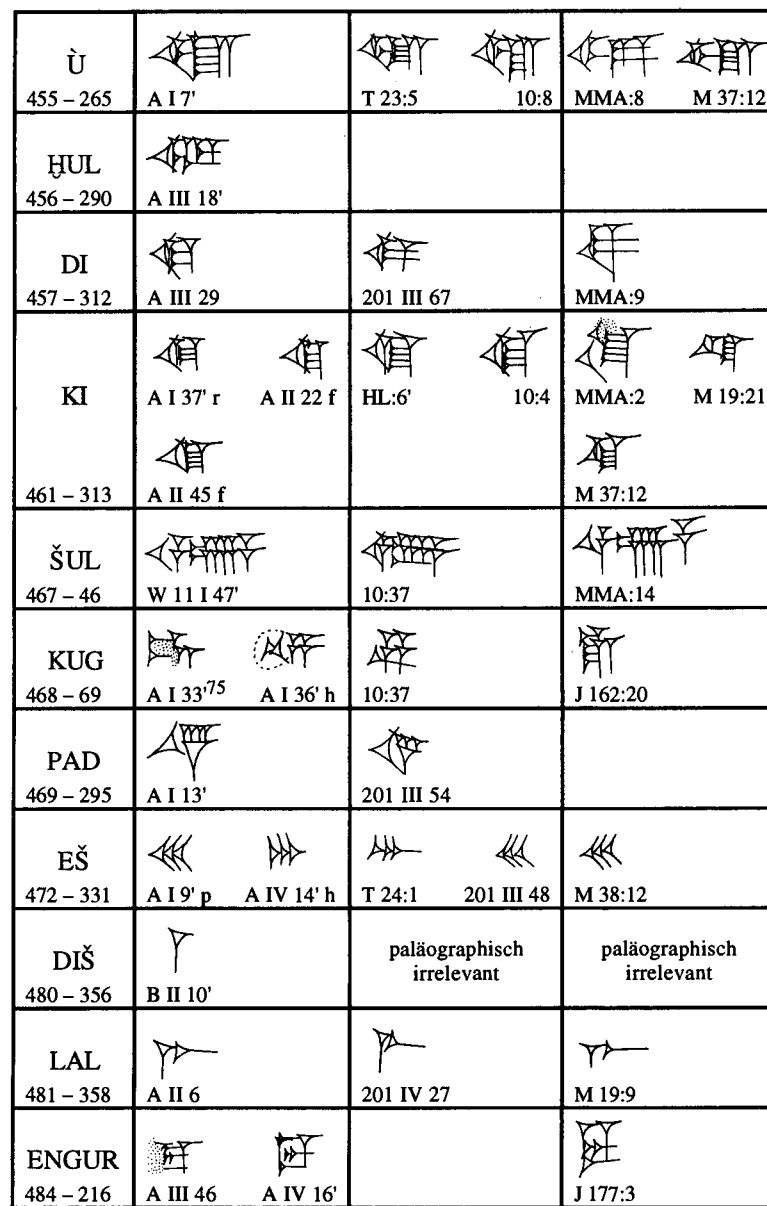 Ù
455 – 265 A I 7' T 23:5 10:8 MMA:8 M 37:12
ḪUL
456 – 290 A III 18'
DI
457 – 312 A III 29 201 III 67 MMA:9
A I 37' r A II 22 f HL:6' 10:4 MMA:2 M 19:21
KI
461 – 313 A II 45 f M 37:12
ŠUL
467 – 46 W 11 I 47' 10:37 MMA:14
KUG
468 – 69 A I 33'⁷⁵ A I 36' h 10:37 J 162:20
PAD
469 – 295 A I 13' 201 III 54
EŠ
472 – 331 A I 9' p A IV 14' h T 24:1 201 III 48 M 38:12
DIŠ paläographisch irrelevant paläographisch irrelevant
480 – 356 B II 10'
LAL
481 – 358 A II 6 201 IV 27 M 19:9
ENGUR
484 – 216 A III 46 A IV 16' J 177:3